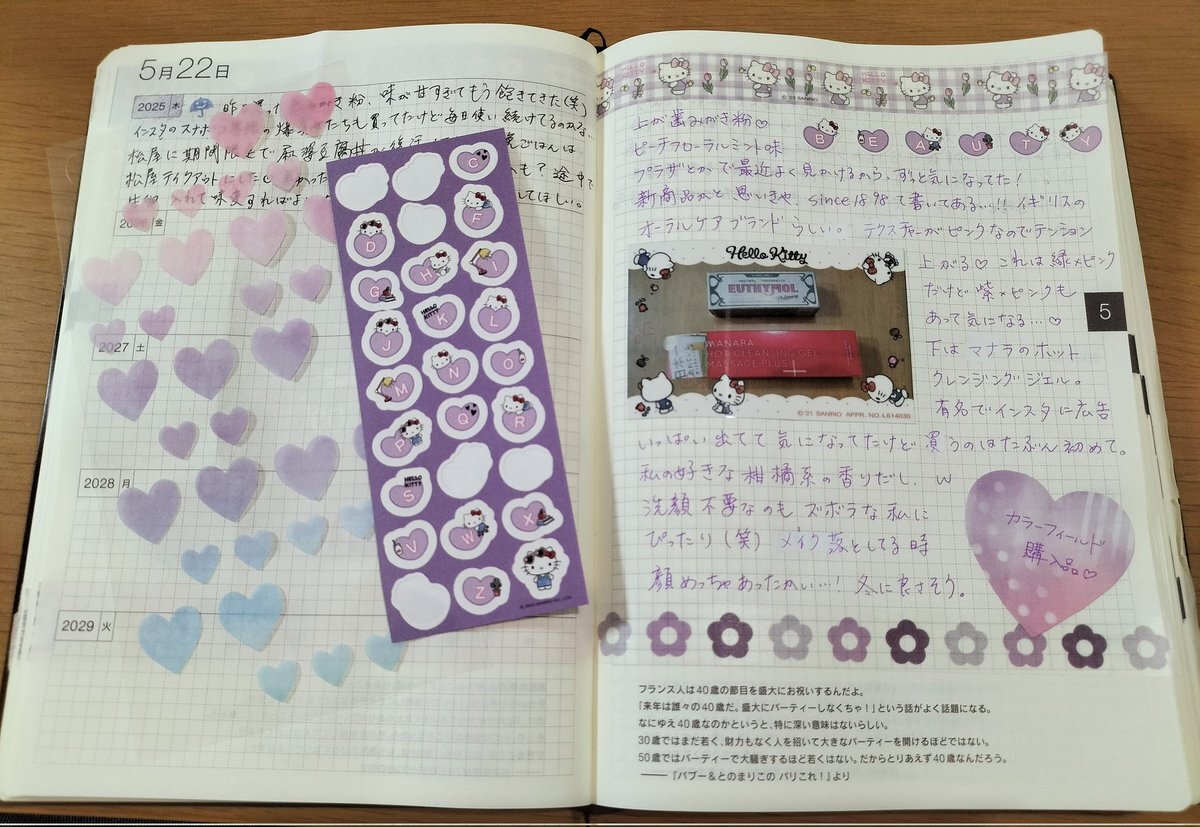 5月22日
2025 木
昨
き粉、味が甘すぎてもう飽きてきた(笑)
インスタのスナ
たちも買ってたけど毎日使い続けてるのかな…
松屋に期間
で麻婆豆腐丼
晩ごはんは
松屋テイクアウトにした
かった
も？途中で
入れて味変すればよ
してほしい。
2026 金
2027 土
2028 月
2029 火
C
F
D
I
H
G
L
K
J
O
N
M
R
Q
P
S
HELLO KITTY
X
W
V
Z
HELLO KITTY
©'23 SANRIO
BEAUTY
上が歯みがき粉♡
ピーチフローラルミント味
プラザとかで最近よく見かけるから、ずっと気になってた！
新商品かと思いきや、since 1898て書いてある…!! イギリスの
オーラルケアブランドらしい。 テクスチャーがピンクなのでテンション
上がる♡ これは緑×ピンク
だけど紫×ピンクも
あって気になる…♡
下はマナラのホット
クレンジングジェル。
有名でインスタに広告
いっぱい出てて気になってたけど買うのはたぶん初めて。
私の好きな柑橘系の香りだし、w
洗顔不要なのもズボラな私に
ぴったり(笑) メイク落としてる時
顔めっちゃあったかい…! 冬に良さそう。
Hello Kitty
EUTHYMOL
MANARA
HOT CLEANSING GEL
MASSAGE PLUS
©'21 SANRIO APPR. NO.L614030
5
カラーフィールド
購入品♡
フランス人は40歳の節目を盛大にお祝いするんだよ。
「来年は誰々の40歳だ。盛大にパーティーしなくちゃ！」という話がよく話題になる。
なにゆえ40歳なのかというと、特に深い意味はないらしい。
30歳ではまだ若く、財力もなく人を招いて大きなパーティーを開けるほどではない。
50歳ではパーティーで大騒ぎするほど若くはない。だからとりあえず40歳なんだろう。
──『パブー&とのまりこの パリこれ！』より